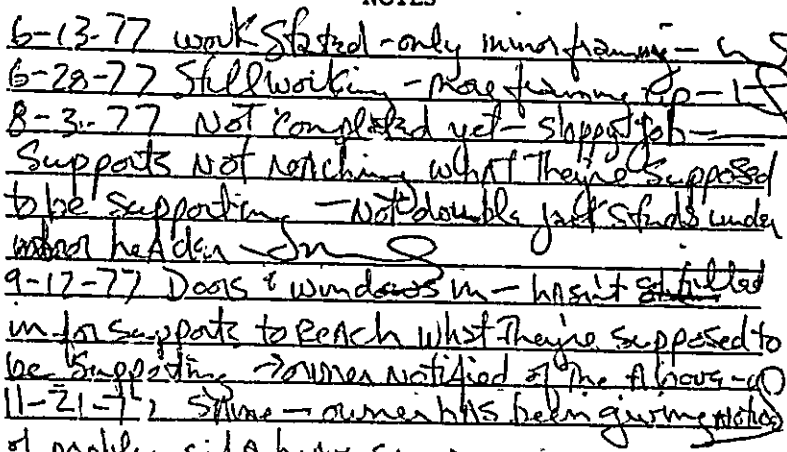 NOTES
6-13-77 work started - only minor framing -
6-28-77 Still working - more framing up -
8-3-77 Not completed yet - sloppy job -
Supports not reaching what they're supposed
to be supporting - Not double jack studs under
header
9-12-77 Doors & windows in - hasn't filled
in for supports to reach what they're supposed to
be supporting → owner notified of the above -
11-21-77 Same - owner has been giving notice
of